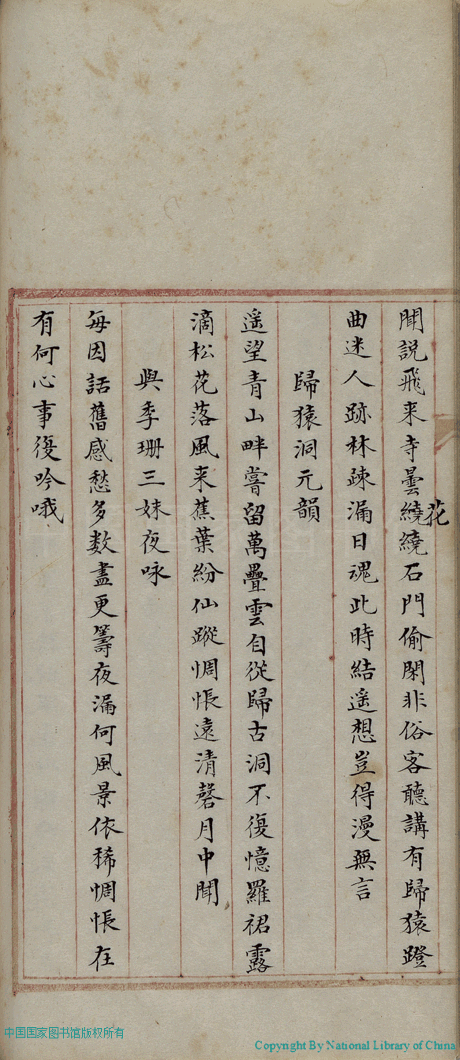 聞說飛来寺曇繞繞石門偷閑非俗客聽講有歸猿蹬
花
曲迷人跡林疎漏日魂此時結遥想豈得漫無言
歸猿洞元韻
遥望青山畔嘗留萬疊雲自從歸古洞不復憶羅裙露
滴松花落風来蕉葉紛仙蹤惆悵遠清磬月中聞
與季珊三妹夜咏
每因話舊感愁多数盡更籌夜漏何風景依稀惆悵在
有何心事復吟哦
中国国家图书馆版权所有
Copyright By National Library of China